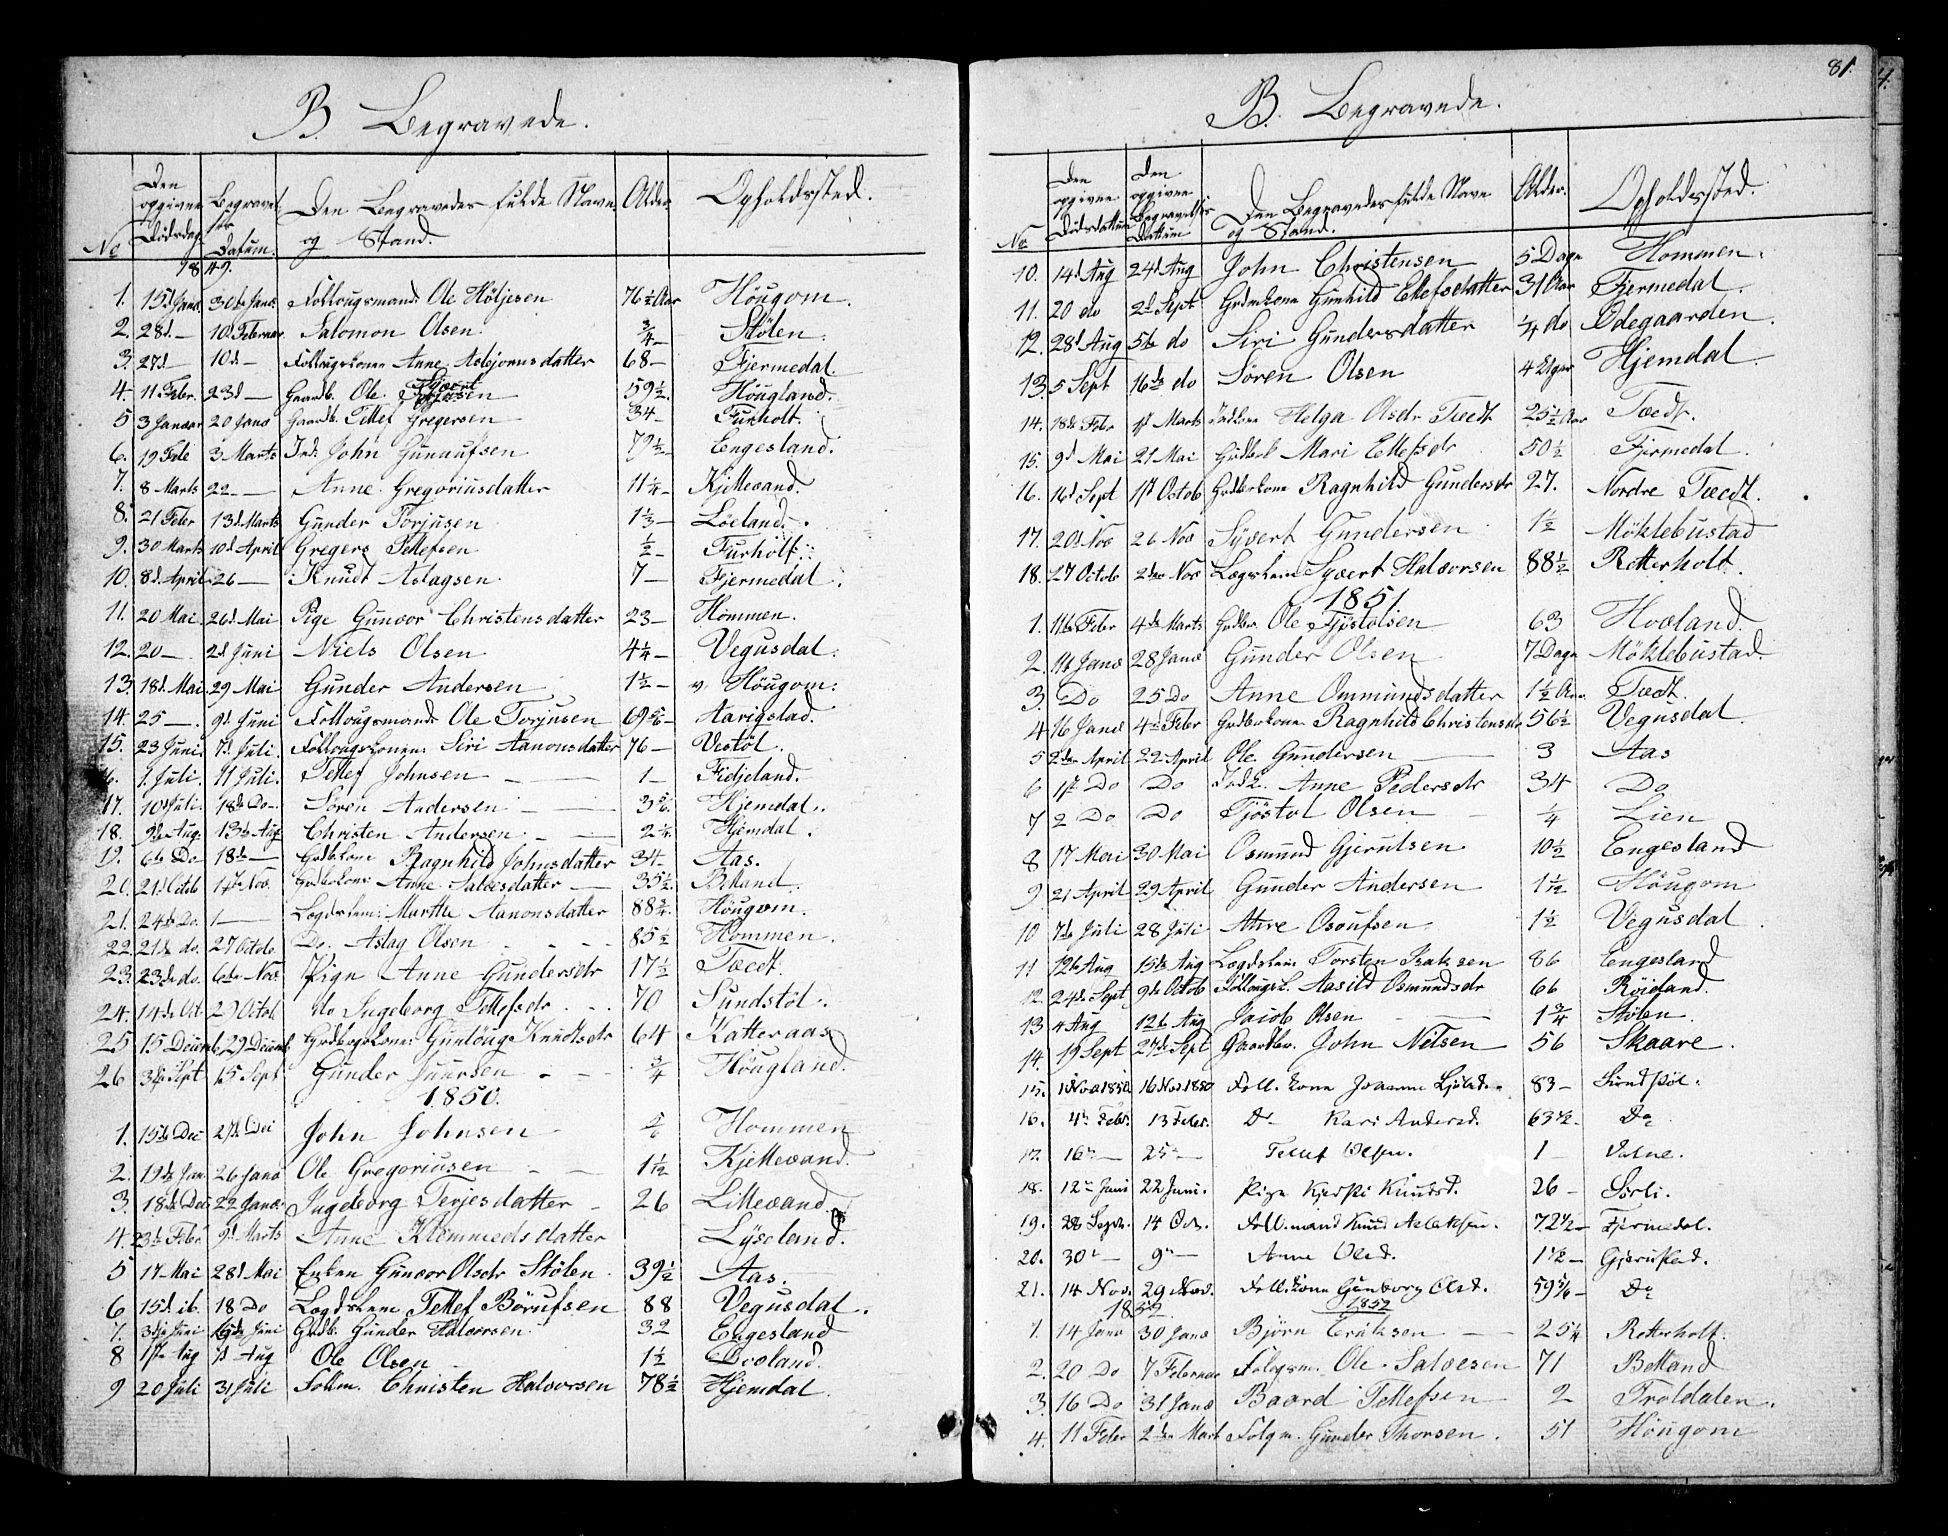 B. Begravede.
No
Den opgivne Dödsdag
Begravelses Datum.
Den Begravedes fulde Navn og Stand.
Alder
Opholdssted.
1849.
1. 15d Janu. 30te Janu. Follougsmand Ole Höljesen 76½ Aar Höugom.
2. 28d — 10d Februar Salomon Olsen ¾ — Stölen.
3. 27d — 10d — Follougskonen Anne Asbjornsdatter 68 — Fjermedal.
4. 11 Febr. 23d — Gaardb. Ole Sjvert 59½ Höugland.
5 3 Januar 20 Janu Gaardb. Tellef Gregersen 34 — Furholt.
6. 19 Feb 3 Marts Ind. John Gunnufsen 79½ — Engesland.
7. 8 Marts 22 — Anne Gregoriusdatter 11¼ — Kjettevand.
8. 21 Febr 13d Marts Gunder Torjusen 1⅓ — Löeland.
9. 30 Marts 10d April Gregers Tellefsen ½ — Furholt.
10. 8d April 26 — Knudt Aslagsen 7 — Fjermedal.
11. 20 Mai 26d Mai Pige Gunvor Christensdatter 23 — Hommen.
12. 20 — 2d Juni Niels Olsen 4¼ — Vegusdal.
13. 18d Mai 29 Mai Gunder Andersen 1½ — v. Höugom.
14. 25 — 9d Juni Follougsmand Ole Torjusen 69 5/6 — Aarigstad.
15. 23 Juni 7d Juli Follougskonen Siri Aanonsdatter 76 — Vestöl.
16. 1. Juli. 11 Juli. Tellef Johnsen — 1 — Fidjeland.
17. 10d Juli. 18de Do — Sören Andersen — 3 5/6 Hjemdal.
18. 9de Aug. 13de Aug Christen Andersen — 2¼ Hjemdal.
19. 6te Do 18de — Grdbrkone Ragnhild Johnsdatter 34 — Aas.
20. 21d Octob 14de Nov. Grdbrkone Anne Salvesdatter — 35½ Beiland.
21. 24de Do. 1 — Lægdslem Marthe Aanonsdatter 88¾ Höugom.
22. 21de do. 27 Octob. Do. Aslag Olsen 85½ Hommen.
23. 23de do. 6te Nov Pigen Anne Gundersdr 17½ Tvedt.
24. 14de Oct 29 Octob do Ingeborg Tellefsdr 70 Sundstöl.
25 15 Decemb. 29 Decemb. Grdbrgskone Gunlöug Knudtsdr 64 Katteraas
26 3de Sept 15 Sept Gunder Juursen ¾ Höugland.
1850.
1. 15de Dec 27de Dec John Johnsen Hommen
2. 19de Jan 26 Janu Ole Gregoriusen 1 1/12 Kjettevand.
3. 18de Dec 22 Janu. Ingeborg Terjesdatter 26 Lillevand.
4. 23de Febr 9d Marts Anne Klemmedsdatter Lyseland.
5 17 Mai 28d Mai Enken Gunvor Olsdr Stölen 39½ Aas.
6 15d ib. 18 Do Lægdslem Tellef Börufsen 88 Vegusdal.
7. 3die Juni 16de Juni Grdb. Gunder Halvorsen 32 Engesland
8 1st Aug 1d Aug Ole Olsen 1½ Dovland.
9 20 Juli 31 Juli Follm. Christen Halvorsen 78½ Hjemdal.
81.
B. Begravede.
No
Den opgivne Dödsdattum
Den opgivne Begravelses Dattum
Den Begravedes fulde Navn og Stand.
Alder.
Opholdssted.
10. 14d Aug 24d Aug John Christensen 5 Dage Hommen.
11. 20 do 2d Sept Grdmkone Gunhild Ellefsdatter 31 Aar Fjermedal.
12. 28d Aug 5te do Siri Gundersdatter ¼ do Ödegaarden.
13. 5 Sept 16de do Sören Olsen 4 Uger Hjemdal.
14. 18de Febr 1st Marts Indkone Helga Olsdr Tvedt 25½ Aar Tvedt.
15. 9d Mai 21 Mai Grdbrk Mari Ellefsdr 50½ Fjermedal.
16. 16d Sept 1st Octob Grdbrkone Ragnhild Gundersdr 27. Nordre Tvedt.
17. 20d Nov 26 Nov Syvert Gundersen 1½ Möklebustad
18. 27 Octob 2den Nov Lægslem Syvert Halvorsen 88½ Retterholt.
1851
1. 11te Febr 4de Marts Grdbr Ole Tjöstolsen 63 Hvoland.
2. 11te Janu 28 Janu Gunder Olsen 7 Dage Möklebustad.
3. Do 25 Do Anne Ommundsdatter 1½ Aar. Tvedt.
4 16 Janu 4de Febr Grdbrkone Ragnhild Christensdr 56½ Vegusdal.
5 2den April 22 April Ole Gundersen 3 Aas
6 1st Do Do Indk. Anne Pedersdr 34 Do
7 2 Do Do Tjöstol Olsen ¼ Lien
8 17 Mai 30 Mai Osmund Gjerulsen 10½ Engesland
9 21 April 29 April Gunder Andersen 1 1/12 Höugom
10 7de Juli 28 Juli Athre Osoufsen 1½ Vegusdal
11 12te Aug 15de Aug Lægdslem Torsten Isaksen 86 Engesland
12. 24de Sept 9de OctobFöllougsk. Aasild Osmundsdr 66 Röieland.
13 4 Aug 12te Aug Jacob Olsen 1¾ Stölen.
14. 19 Sept 27de Sept Gaardbr. John Nilsen 56 Skaare.
15. 1 Nov 1850 16 Nov. 1850 Foll. kone Joranne Ljölsd. 83 — Sundstöl.
16. 4de Febr. 13 Febr. Do Kari Andersd. 63½ — Do
17. 16de — 25de — Tellef Olsen. 1 — Vatne.
18. 12te Juni 22 Juni. Pige Kjersti Knudsd. 26 — Sørli.
19. 28 Septr. 14 Oct. Foll.mand Knud Aslaksen. 72½ — Fjermedal.
20. 30te — 9de — Anne Olsd. 1½ — Gjerustad.
21. 14 Nov. 29 Nov. Foll.kone Gunborg Olsd. 59 5/6 — Do
1852 1852
1. 14 Janu 30 Janu Björn Eriksen 25¼ Retterholt.
2. 20 Do 7 Februar Folgsm. Ole Salvesen 71 Beiland
3. 16 Do 31 Janu Baard Tellefsen 2 Troldalen.
4. 11 Febr 2den Mart Folgm. Gunder Thorsen. 51 Höugom